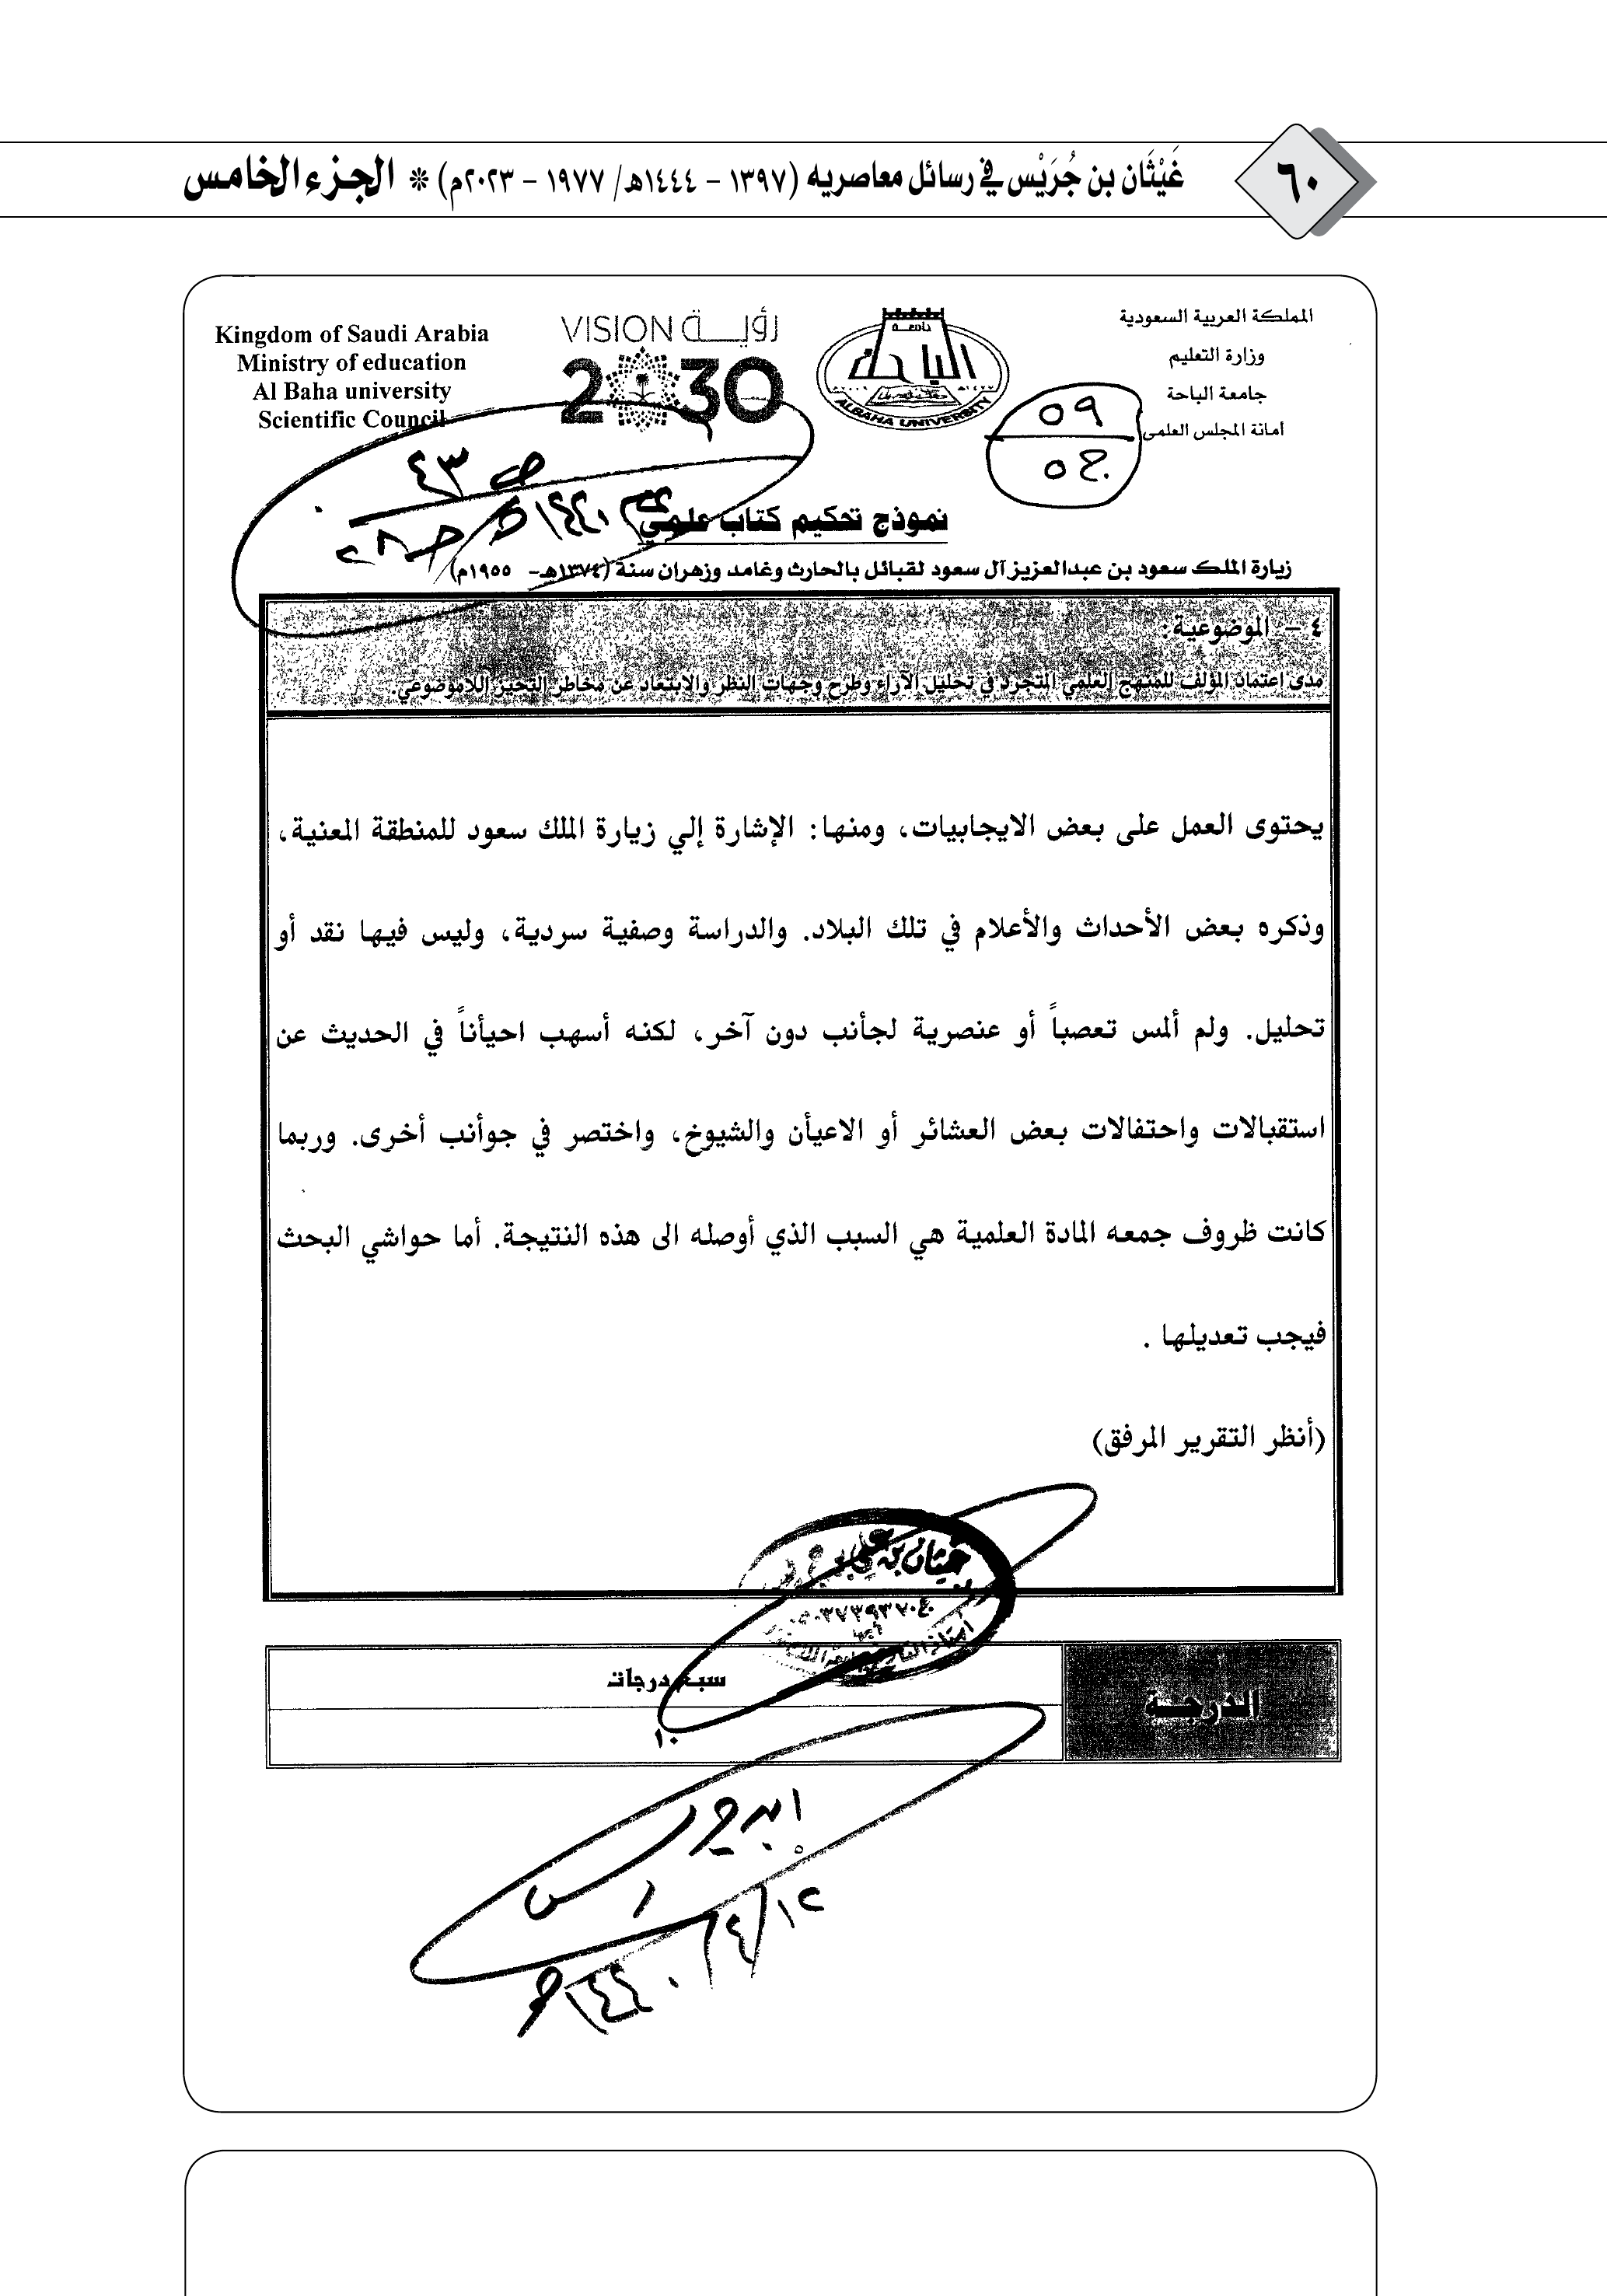 ٦٠
غَيْثَان بن جُرَيْس في رسائل معاصريه (١٣٩٧ - ١٤٤٤هـ/ ١٩٧٧ - ٢٠٢٣م) * الجزء الخامس
المملكة العربية السعودية
وزارة التعليم
جامعة الباحة
أمانة المجلس العلمي
جامعة
الباحة
ALBAHA UNIVERSITY
VISION رؤيـــة
2030
Kingdom of Saudi Arabia
Ministry of education
Al Baha university
Scientific Council
٥٩
ج٥
ص ٤٣
نموذج تحكيم كتاب علمي
زيارة الملك سعود بن عبدالعزيز آل سعود لقبائل بالحارث وغامد وزهران سنة (١٣٧٤هـ- ١٩٥٥م)
٤ – الموضوعية:
مدى اعتماد المؤلف للمنهج العلمي المتجرد في تحليل الآراء وطرح وجهات النظر والابتعاد عن مخاطر التحيز اللاموضوعي.
يحتوى العمل على بعض الايجابيات، ومنها: الإشارة إلي زيارة الملك سعود للمنطقة المعنية،
وذكره بعض الأحداث والأعلام في تلك البلاد. والدراسة وصفية سردية، وليس فيها نقد أو
تحليل. ولم ألمس تعصباً أو عنصرية لجأنب دون آخر، لكنه أسهب احيأناً في الحديث عن
استقبالات واحتفالات بعض العشائر أو الاعيأن والشيوخ، واختصر في جوأنب أخرى. وربما
كانت ظروف جمعه المادة العلمية هي السبب الذي أوصله الى هذه النتيجة. أما حواشي البحث
فيجب تعديلها .
(أنظر التقرير المرفق)
غيثان بن علي بن جريس
الدرجـــة
سبع درجات
١٠
ابن جريس
١٢/٤/١٤٤٠هـ